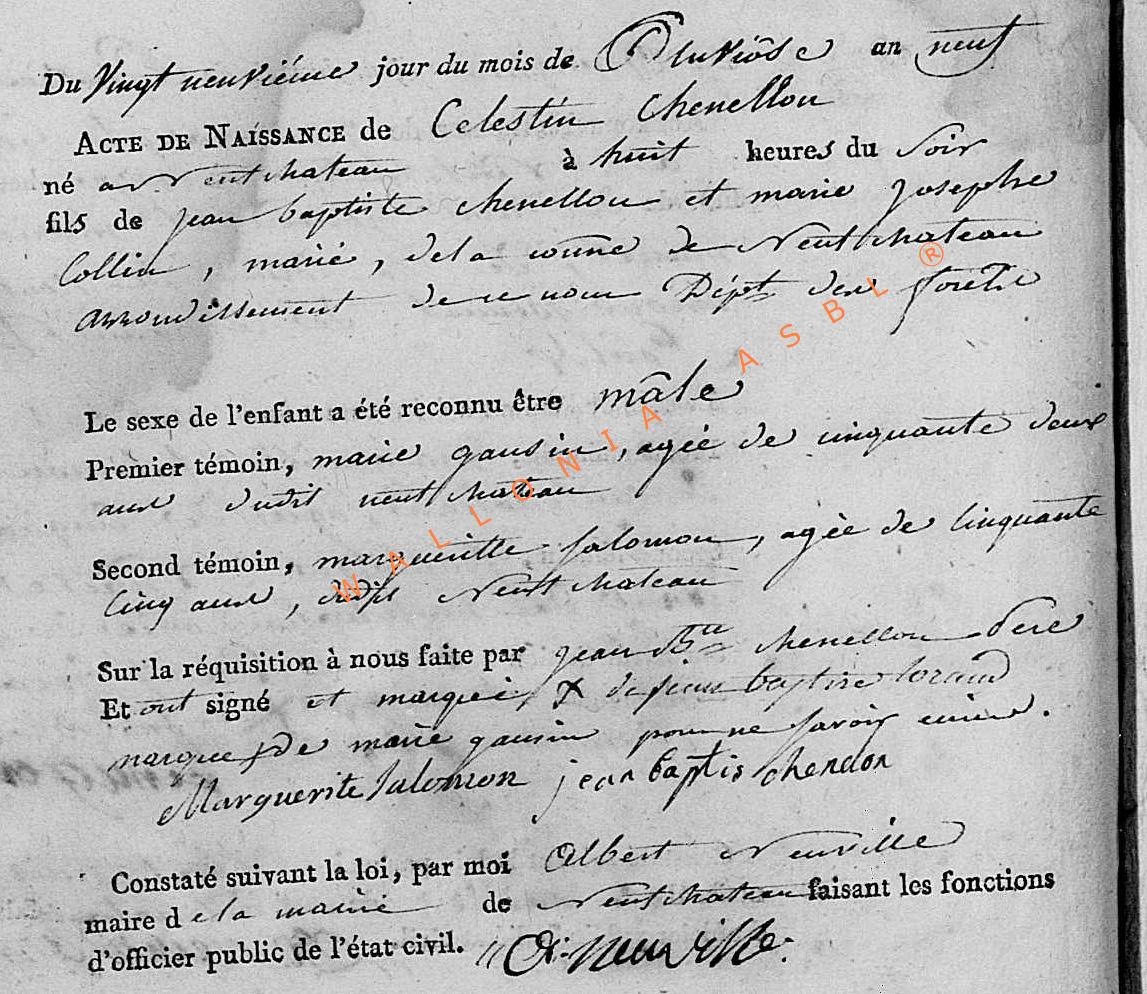 Du Vingt neuviéme jour du mois de Pluviôse an neuf
ACTE DE NAISSANCE de Celestin Chenellon
né a Neufchateau à huit heures du Soir
fils de jean baptiste chenellon et marie josephe
Collin, marié, dela comne de Neufchateau
arrondissement de ce nom Dépt des forêts
Le sexe de l'enfant a été reconnu être mâle
Premier témoin, marie gausin, agée de cinquante deux
ans dudit neufchateau
Second témoin, marguerite Salomon, agée de Cinquante
Cinq ans, dudit Neufchateau
Sur la réquisition à nous faite par jean Bte chenellon Pere
Et ont signé et marqué, X de jean baptise
marque de marie gausin pour ne savoir
Marguerite Salomon jean baptis chendon
Constaté suivant la loi, par moi Albert Neuville
maire de la mairie de Neufchateau faisant les fonctions
d'officier public de l'état civil. A: Neuville.
WALLONIA ASBL ®